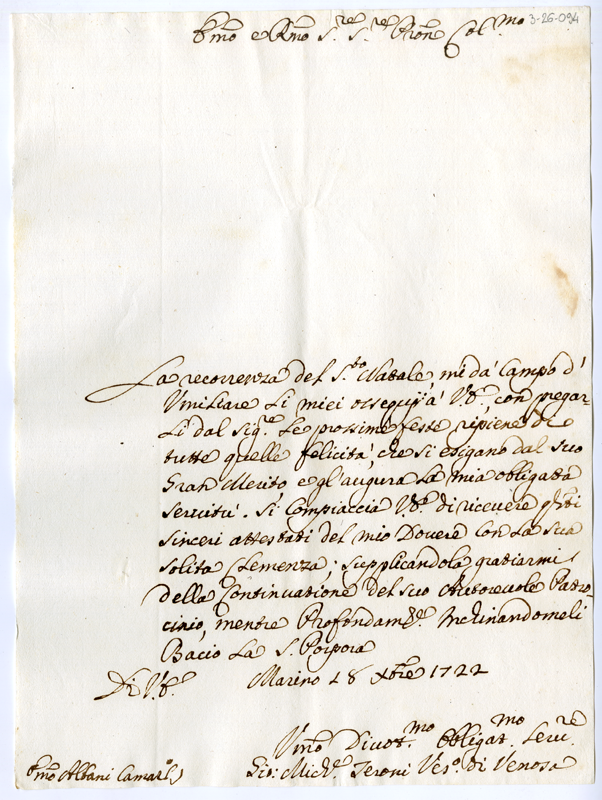 3-26-094
Emo e Rmo S.re S.re Pron Col.mo
La recorrenza del S.to Natale, mi dà Campo d'
Umiliare li miei ossequij à V.E., con pregar-
Li dal Sig.re Le prossime feste ripiene di
tutte quelle felicità, che si esigano dal suo
Gran Merito e gl'augura La mia obligata
servitù. Si Compiaccia V.E. di ricevere q.sti
sinceri attestati del mio Dovere con La sua
solita Clemenza; supplicandola gratiarmi
della Continuatione del suo Autorevole Patro-
cinio, mentre Profondam.te Inchinandomeli
Bacio La S. Porpora
Di V.E. Marino 18 Xbre 1722
Emo Albani Camarl.o
Umo Divot.mo Obligat.mo Serv.re
Gio: Mich.e Teroni Ves.o di Venosa